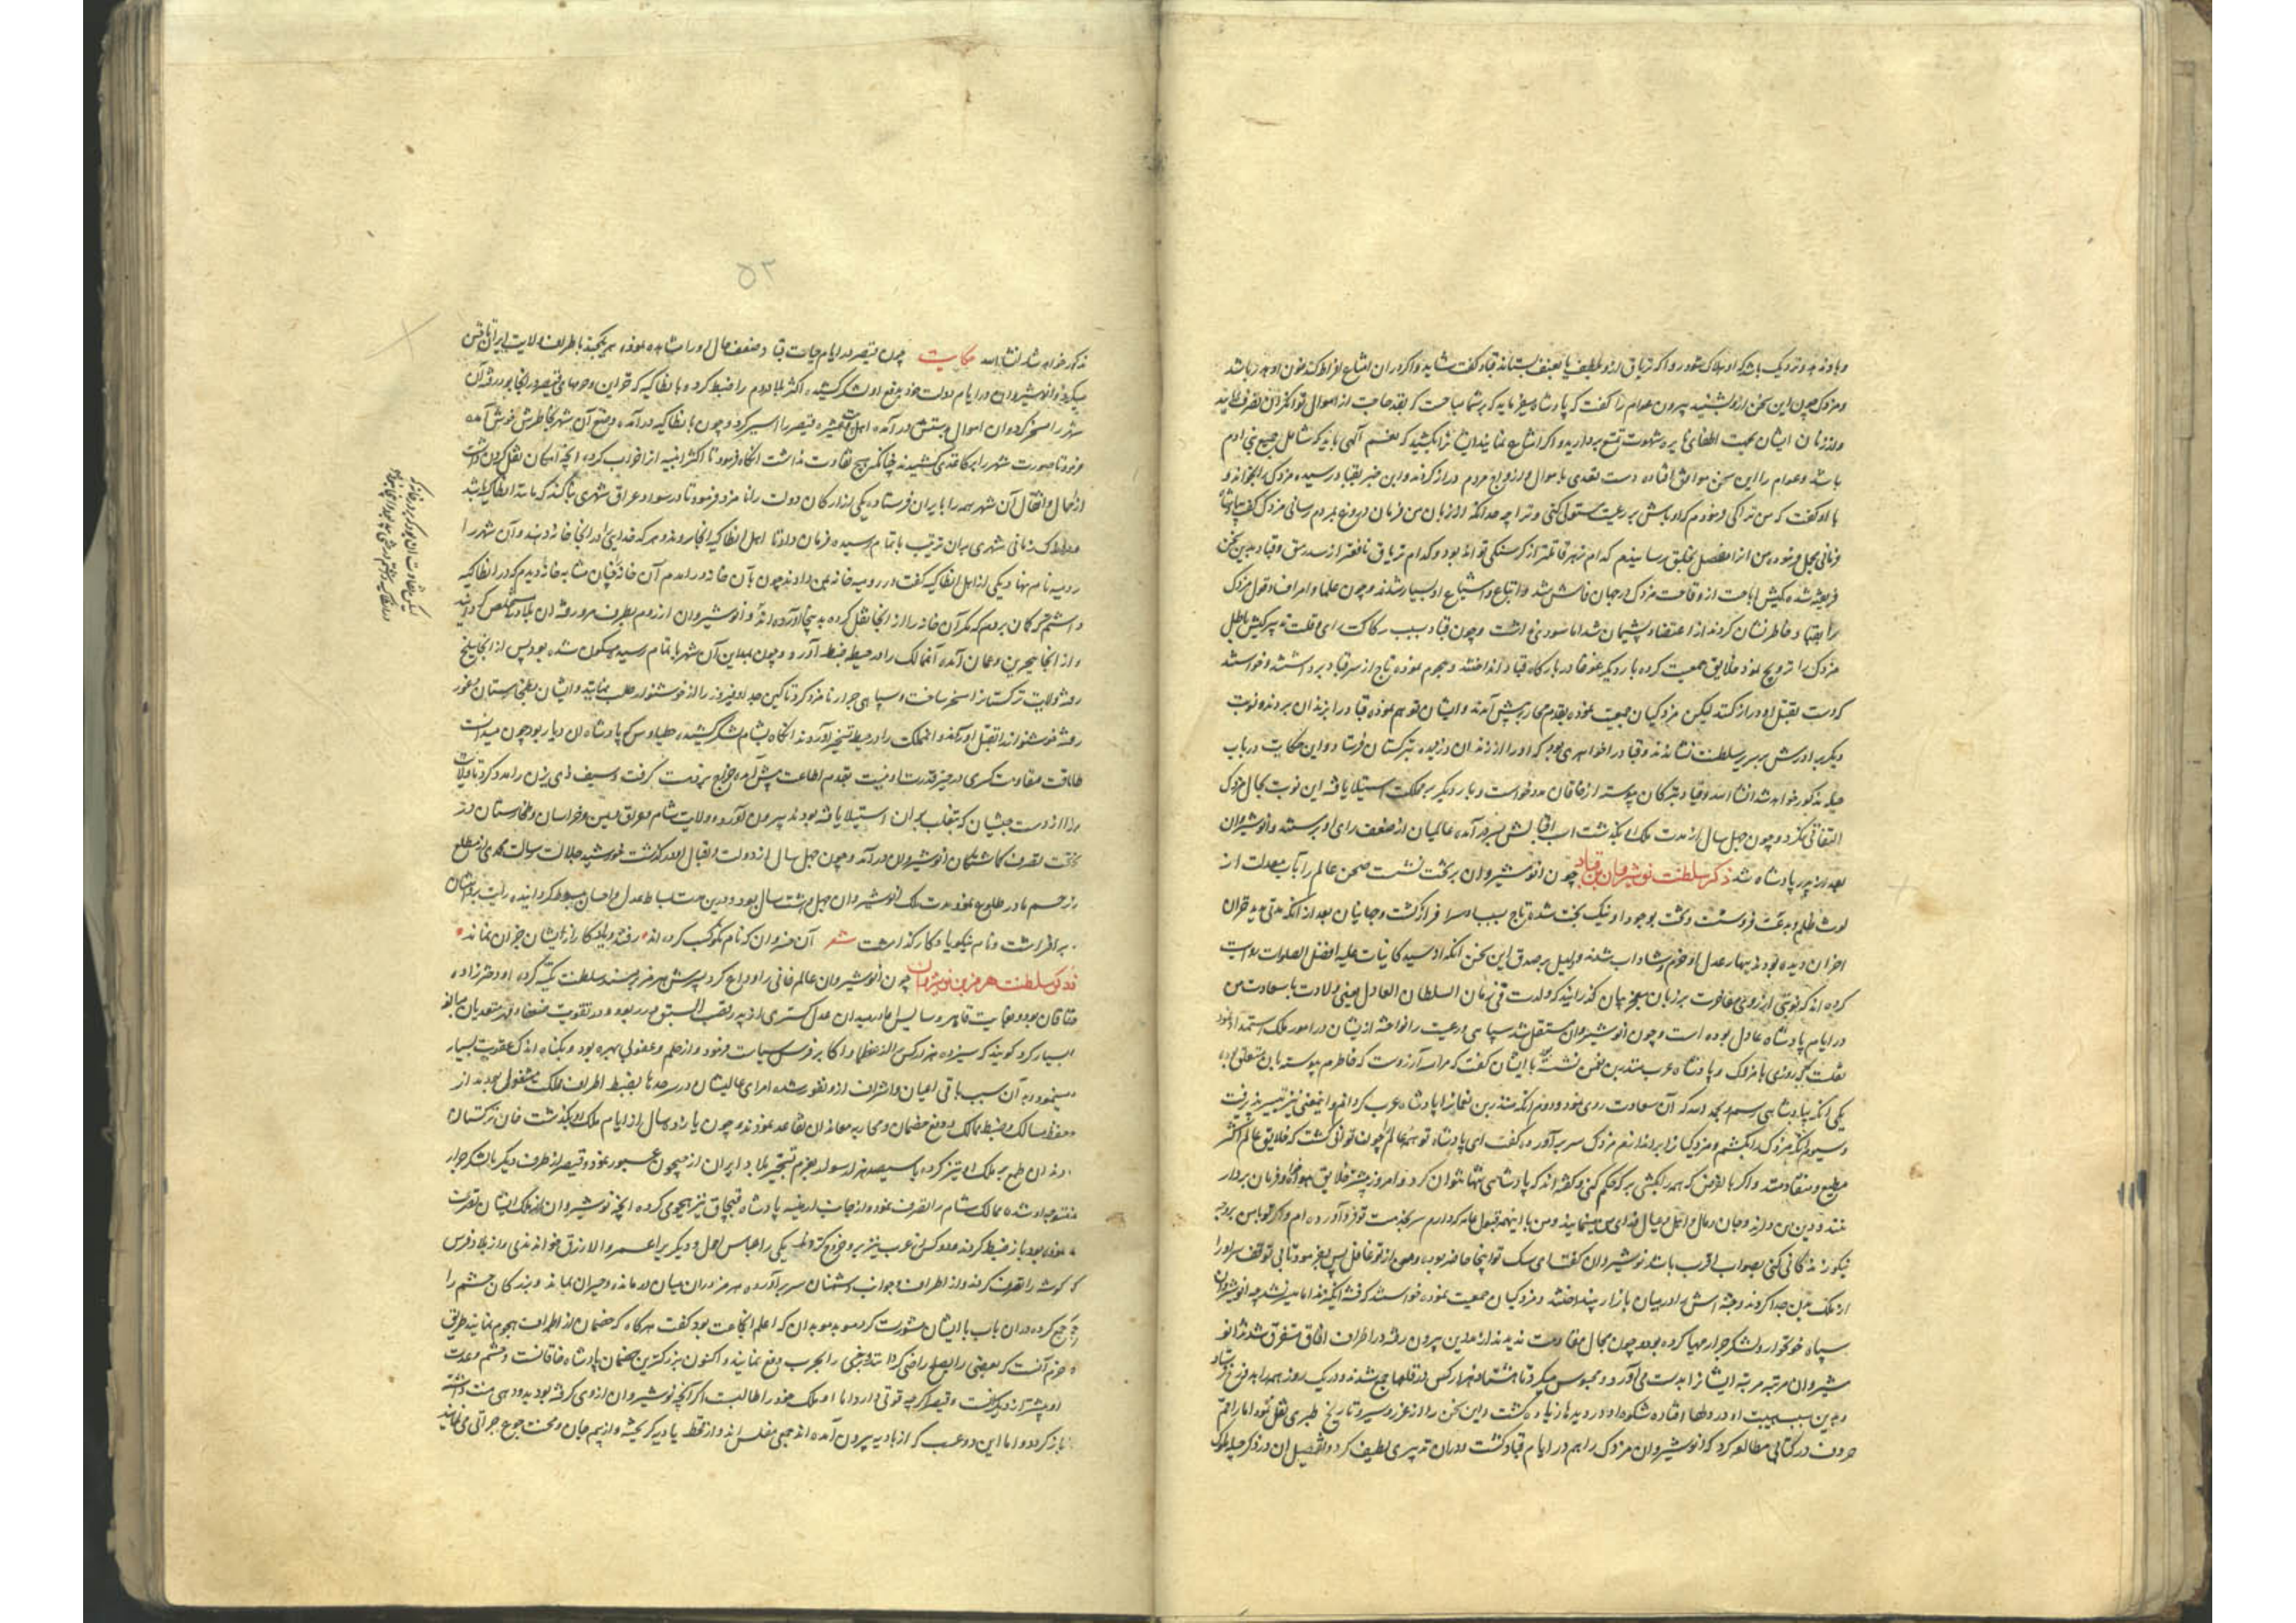 و باو ندهد و نزدیک باشد که او هلاک شود روا که تریاق ازو بلطف یا بعنف بستاند قباد گفت شاید و اگر در ان امتناع افراط کند خون او هدر باشد
و مزدک چون این سخن ازو بشنید بیرون عوام را گفت که پادشاه میفرماید که بر شما مباحست که بقدر حاجت از اموال توانگران تصرف نمایند
و از زنان ایشان بجهت اطفای نایره شهوت تمتع بردارید و اگر امتناع نمایند ایشانرا بکشید که نعیم آلهی باید که شامل جمیع بنی ادم
باشد و عوام را این سخن موافق افتاده دست تعدی باموال و ازواج مردم دراز کردند و این خبر بقباد رسیده مزدک را بخواند و
با او گفت که من ترا کی فرمودم که اوباش بر رعیت مستولی کنی و ترا چه حد آنکه از زبان من فرمان دروغ بمردم رسانی مزدک گفت
فرمانی مجمل فرموده من انرا مفصل بخلایق رسانیدم کدام زهر قاتلتر از گرسنگی تواند بود و کدام تریاق نافعتر از سد رمق و قباد بدین سخن
فریفته شده کیش اباحت از وقاحت مزدک در جهان فاش شد و اتباع و اشیاع او بسیار شدند و چون علما و اشراف قول مزدک
را بقباد خاطر نشان کردند از اعتقاد پشیمان شد اما سودی نداشت و چون قباد بسبب رکاکت رای و قلت تدبیر کیش باطل
مزدک را ترویج نمود خلایق جمعیت کرده بار دیگر غوغا در بارگاه قباد انداختند و هجوم نموده تاج از سر قباد برداشتند و خواستند
که دست بقتل او دراز کنند لیکن مزدکیان جمعیت نموده بقدم محاربه پیش آمدند و ایشان توهم نموده قباد را بزندان بردند و نوبت
دیگر برادرش بر سریر سلطنت نشاندند و قباد را خواهری بود که او را از زندان دزدیده بترکستان فرستاد و این حکایت در باب
حیله مذکور خواهد شد انشاء الله و قباد بترکان پیوسته از خاقان مدد خواست و بار دیگر بر مملکت استیلا یافته این نوبت بحال مزدک
التفاتی نکرد و چون چهل سال از مدت ملک او بگذشت اسب اقبالش بسر درآمد عالمیان از ضعف رای او برستند و انوشیروان
بعد از پدر پادشاه شد ذکر سلطنت نوشیروان بن قباد چون انوشیروان بر تخت نشست صحن عالم را بآب معدلت از
لوث ظلم و بدعت فروشست و تخت بوجود او نیک بخت شده تاج بسبب او سرافراز گشت و جهانیان بعد از آنکه مدتی مدید
احزان دیده بودند ببهار عدل او خرم و شاداب شدند و دلیل بر صدق این سخن آنکه از سید کاینات علیه افضل الصلوات روایت
کرده اند که نوبتی از روی مفاخرت بر زبان معجز بیان گذرانید که ولدت فی زمان السلطان العادل یعنی ولادت با سعادت من
در ایام پادشاه عادل بوده است و چون انوشیروان مستقل شد سپاهی و رعیت را نواخته از ایشان در امور ملک استمداد نمود
روزی با مزدک و پادشاه عرب منذر بن نشسته با ایشان گفت که مرا سه آرزوست که خاطرم پیوسته بان متعلق بود
یکی آنکه بپادشاهی رسم و بحمد الله که آن سعادت روی نمود و دوم آنکه منذر بن نعمانرا پادشاه عرب گردانم و این معنی نیز تیسیر پذیرفت
و سیوم آنکه مزدک را بکشم و مزدکیانرا براندازم مزدک سر برآورده گفت ای پادشاه تو همه عالم را چون توانی کشت که خلایق عالم اکثر
مطیع و منقاد منند و اگر بالفرض که همه را بکشی بر که حکم کنی و گفته اند که پادشاهی بتنها نتوان کرد و امروز بیشتر خلایق هواخواه و فرمان بردار
منند و دین من دارند و جان و مال و اهل و عیال فدای من مینمایند و من با اینهمه قبول عامه که دارم سر بخدمت تو فرو آورده ام و اگر تو با من بروجه
نیکو زندگانی کنی بصواب اقرب باشد نوشیروان گفت ای سگ تو اینجا حاضر بودی و من از تو غافل پس بفرمود تا بی توقف سر او را
از ملک بدن جدا کردند و جثه اش را در میان بازار بینداختند و مزدکیان جمعیت نموده خواستند که فتنه انگیزند اما میسر نشد چه انوشیروان
سپاه خونخوار و لشکر جرار مهیا کرده بود و چون مجال مقاومت ندیدند از مداین بیرون رفته در اطراف افاق متفرق شدند و انو
شیروان مرتبه مرتبه ایشانرا بدست می آورد و محبوس میکرد تا هشتاد هزار کس در قلعها جمع شدند و در یک روز همه را بدوزخ فرستاد
و بدین سبب هیبت او در دلها افتاده شکوه او در دیدها زیاده گشت و این سخن را از غرر و سیر و تاریخ طبری نقل نمود اما راقم
حروف در کتابی مطالعه کرد که انوشیروان مزدک را هم در ایام قباد کشت و در ان تدبیری لطیف کرد و تفصیل ان در ذکر حیله ملوک
۵۲
مذکور خواهد شد انشاء الله حکایت چون قیصر در ایام حیات قباد ضعف حال او را مشاهده نموده باطراف ولایت ایران تاختن
میکرد و انوشیروان در ایام دولت خود بدفع او لشکر کشیده اکثر بلاد روم را ضبط کرد و بانطاکیه که خزاین و حرمهای قیصر در انجا بود رفته آن
شهر را مسخر کرد و ان اموال بدستش درآمده اهل و عشیره قیصر را اسیر کرد و چون بانطاکیه درآمد وضع آن شهر بخاطرش خوش آمده
فرمود تا صورت شهر را بر کاغذی کشیدند چنانکه هیچ تفاوت نداشت انگاه فرمود تا اکثر ابنیه انرا خراب کرده انچه امکان نقل کردن داشت
از احمال و اثقال آن شهر همه را بایران فرستاد و یکی از ارکان دولت را نامزد فرمود تا در سواد عراق شهری بنا کند که مانند انطاکیه باشد
و در اندک زمانی شهری بدان ترتیب باتمام رسیده فرمان داد تا اهل انطاکیه انجا روند و هر کدخدایی را در انجا خانه دهند و آن شهر را
رومیه نام نهاد و یکی از اهل انطاکیه گفت در رومیه خانه بمن دادند چون بآن خانه درامدم آن خانه را چنان مشابه خانه دیدم که در انطاکیه
داشتم که گمان بردم که مگر آن خانه را از انجا نقل کرده بدینجا آورده اند و انوشیروان از روم بطرف رفته ان بلاد را مستخلص گردانید
و از انجا ببحرین و عمان آمده آنممالک را در حیطه ضبط آورد و چون بمداین آمد آن شهر باتمام رسیده مسکون شده بود پس از انجا ببلخ
رفته ولایت ترکستانرا مسخر ساخت و سپاهی جرار نامزد کرد تا کین جد او فیروز را از خوشنواز طلب نمایند و ایشان بطخارستان و غور
رفته خوشنواز را بقتل آوردند و آنمملکت را در حیطه تسخیر آوردند انگاه بشام لشکر کشیده حطیاوس که پادشاه ان دیار بود چون میدانست
طاقت مقاومت کسری در حیز قدرت او نیست بقدم اطاعت پیش آمده خراج بر ذمت گرفت و سیف ذی یزن را مدد کرد تا ولایت
را از دست حبشیان که بتغلب بران استیلا یافته بودند بیرون آورد و ولایت شام و عراق و یمن و خراسان و طخارستان در
تحت تصرف گماشتگان انوشیروان درآمد و چون چهل سال از دولت و اقبال او درگذشت خورشید جلالت رسالت محمدی از مطلع
رحم مادر طلوع نمود و مدت ملک انوشیروان چهل و هشت سال بود و درین مدت بساط عدل و احسان مبسوط گردانیده رایت
برافراشت و نام نیکو یادگار گذاشت شعر آن خسروان که نام نکو کسب کرده اند رفتند و یادگار از ایشان جز آن نماند
ذکر سلطنت هرمز بن نوشیروان چون انوشیروان عالم فانی را وداع کرد پسرش هرمز بر مسند سلطنت تکیه کرد و او دخترزاده
خاقان بود و بغایت قاهر و سایس و در میدان عدل گستری از پدر قصب السبق می ربود و در تقویت ضعفا و قهر متعدیان مبالغه
بسیار کرد گویند که سیزده هزار کس از عظما و اکابر فرس سیاست فرمود و از حلم و عفو بی بهره بود و بگناه اندک عقوبت بسیار
مینمود و به آن سبب باقی اعیان و اشراف ازو نفور شده امرای عالیشان در سرحدها بضبط اطراف ملک مشغول بودند از
حفظ مسالک و ضبط ممالک و دفع خصمان و محاربه معاندان تقاعد نمودند و چون یازده سال از ایام ملک او بگذشت خان ترکستان
دندان طمع بر ملک او تیز کرده با سیصد هزار سوار بعزم تسخیر بلاد ایران از جیحون عبور نمود و قیصر از طرف دیگر با لشکر جرار
متوجه او شده ممالک شام را تصرف نمود و از جانب ارمنیه پادشاه قبچاق نیز هجوم کرده انچه نوشیروان از ملک ایشان تصرف
نموده بود باز ضبط کردند و دو کس از عرب نیز برو خروج کردند یکی را عباس احول و دیگری را عمرو الازرق خواندندی و از بلاد فرس
گوشه را تصرف کردند و از اطراف و جوانب دشمنان سر برآورده هرمز در ان میان درمانده و حیران بماند و بندگان حشم را
جمع کرده در ان باب با ایشان مشورت کرد موبد موبدان که اعلم انجماعت بود گفت هرگاه که خصمان از اطراف هجوم نمایند طریق
حزم آنست که بعضی را بصلح راضی گردانند و برخی را بحرب دفع نمایند و اکنون بزرگترین خصمان پادشاه خاقانست و حشم و عدت
او بیشتر از دیگرانست و قیصر اگرچه قوتی دارد اما او ملک خود را طالبست اگر آنچه نوشیروان از وی گرفته بود بدو دهی منت داشته
باز گردد و اما این دو عرب که از بادیه بیرون آمده اند جمعی مفلس اند و از قحط بادیه گریخته و از بیم جان و محنت جوع جراتی می نمایند